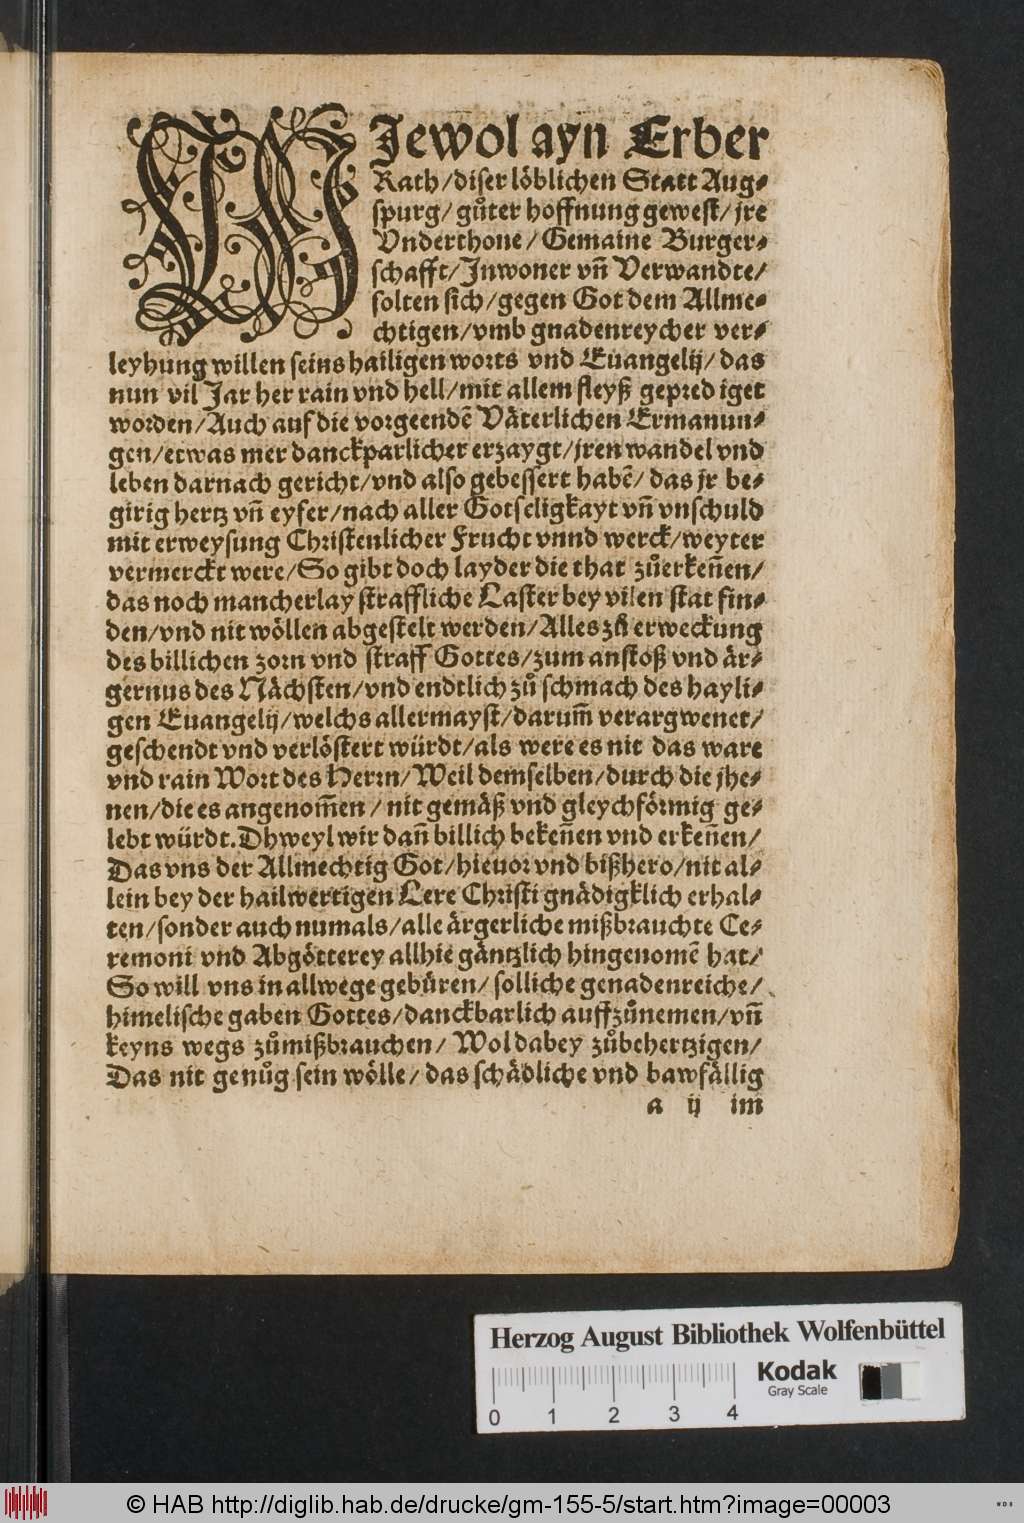 WJewol ayn Erber
Rath/diser löblichen Statt Aug⸗
spurg/ gůter hoffnung gewest/ jre
Vnderthone/ Gemaine Burger⸗
schafft/Jnwoner vn̄ Verwandte/
solten sich/gegen Got dem Allme⸗
chtigen/vmb gnadenreycher ver⸗
leyhung willen seins hailigen worts vnd Euangelij/ das
nun vil Jar her rain vnd hell/mit allem fleyß gepred iget
worden/Auch auf die vorgeendē Väterlichen Ermanun⸗
gen/etwas mer danckparlicher erzaygt/jren wandel vnd
leben darnach gericht/vnd also gebessert habē/ das jr be⸗
girig hertz vn̄ eyfer/nach aller Gotseligkayt vn̄ vnschuld
mit erweysung Christenlicher Frucht vnnd werck/weyter
vermerckt were/So gibt doch layder die that zůerkēnen/
das noch mancherlay straffliche Laster bey vilen stat fin⸗
den/vnd nit wöllen abgestelt werden/Alles zů erweckung
des billichen zorn vnd straff Gottes/zum anstoß vnd är⸗
gernus des Nächsten/vnd endtlich zů schmach des hayli⸗
gen Euangelij/welchs allermayst/darum̄ verargwenet/
geschendt vnd verlöstert würdt/als were es nit das ware
vnd rain Wort des Herrn/Weil demselben/durch die jhe⸗
nen/die es angenom̄en/ nit gemäß vnd gleychförmig ge⸗
lebt würdt.Dhweyl wir dan̄ billich beken̄en vnd erken̄en/
Das vns der Allmechtig Got/hieuor vnd bißhero/nit al⸗
lein bey der hailwertigen Lere Christi gnädigklich erhal⸗
ten/sonder auch numals/alle ärgerliche mißbrauchte Ce⸗
remoni vnd Abgötterey allhie gäntzlich hingenomē hat/
So will vns in allwege gebüren/ solliche genadenreiche/
himelische gaben Gottes/danckbarlich auffzůnemen/vn̄
keyns wegs zůmißbrauchen/ Wol dabey zůbehertzigen/
Das nit genůg sein wölle/ das schädliche vnd bawfällig
a ij im
Herzog August Bibliothek Wolfenbüttel
Kodak
Gray Scale
0 1 2 3 4
© HAB http://diglib.hab.de/drucke/gm-155-5/start.htm?image=00003